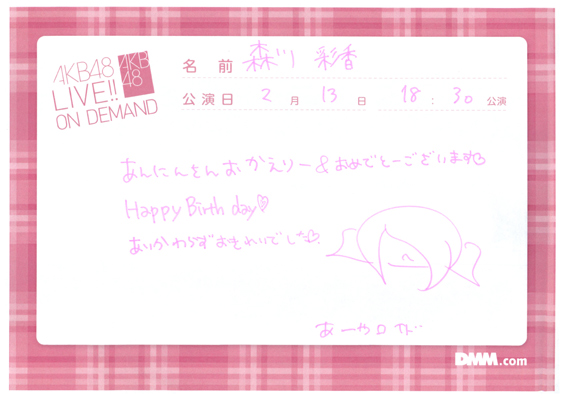 AKB48
LIVE!!
ON DEMAND
AKB
48
名 前 森川 彩香
公演日 2 月 13 日 18 : 30 公演
あんにんさんおかえりー&おめでとーございます♡
Happy Birth day♡
あいかわらずおきれいでした♡
DMM.com